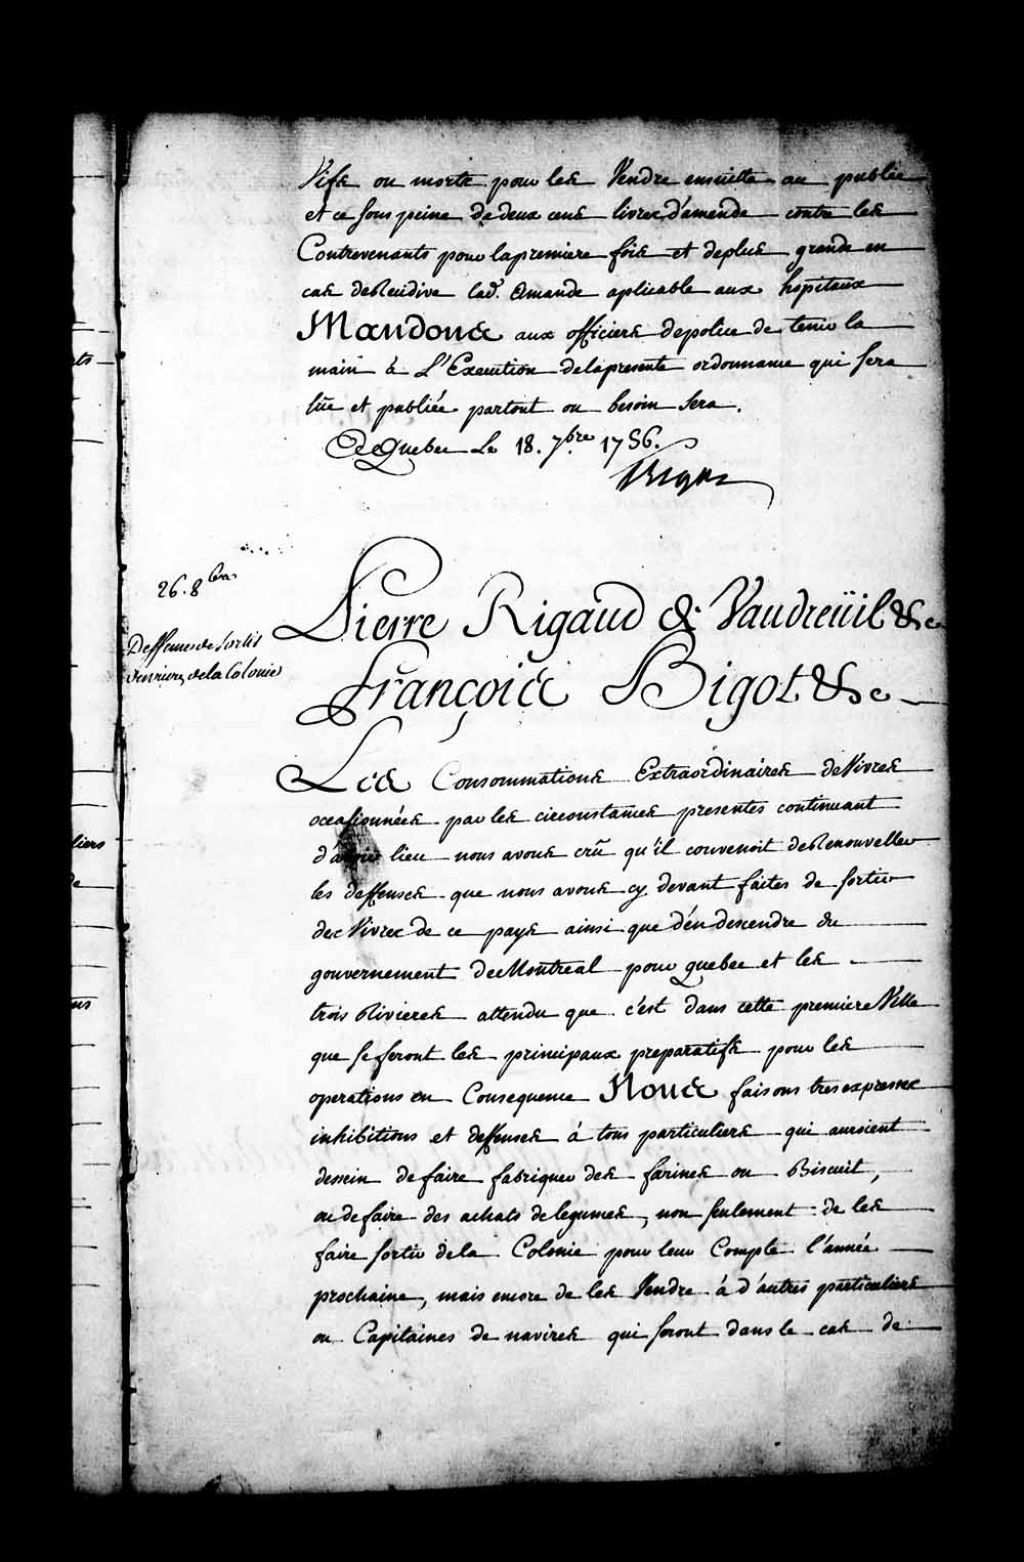 Vifs ou morts pour les Vendre ensuitte au public
et ce sous peine de deux cens livres d'amende contre les
Contrevenants pour la premiere fois et de plus grande en
cas de Recidive lad. amande aplicable aux hopitaux
Mandons aux officiers de police de tenir la
main à L'Execution de la presente ordonnance qui sera
lüe et publiée partout ou besoin sera.
à Quebec Le 18. 7bre 1756.
Bigot
26. 8bre
Deffenses de sortir
vivres de la Colonie
Pierre Rigaud de Vaudreüil &c
François Bigot &c
Les Consommations Extraordinaires de Vivres
occasionnées par les circonstances presentes continuant
d'avoir lieu nous avons crû qu'il convenoit de Renouveller
les deffenses que nous avons cy devant faites de sortir
des Vivres de ce pays ainsi que d'en descendre du
gouvernement de Montreal pour quebec et les
trois Rivieres attendu que c'est dans cette premiere Ville
que se feront les principaux preparatifs pour les
operations en Consequence Nous faisons tres expresses
inhibitions et deffenses à tous particuliers qui auroient
dessein de faire fabriquer des farines ou Biscuit,
ou de faire des achats de legumes, non seulement de les
faire sortir de la Colonie pour leur Compte l'année
prochaine, mais encore de les Vendre à d'autres particuliers
ou Capitaines de navires qui seront dans le cas de
rts
liers
de
ns